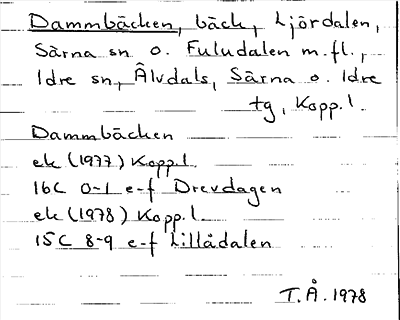 Dammbäcken, bäck, Ljördalen,
Särna sn o. Fuludalen m.fl.,
Idre sn, Älvdals, Särna o. Idre
tg, Kopp.l.
Dammbäcken
ek (1977) Kopp.l.
16C 0-1 e-f Drevdagen
ek (1978) Kopp.l.
15C 8-9 e-f Lillådalen
T.Å. 1978